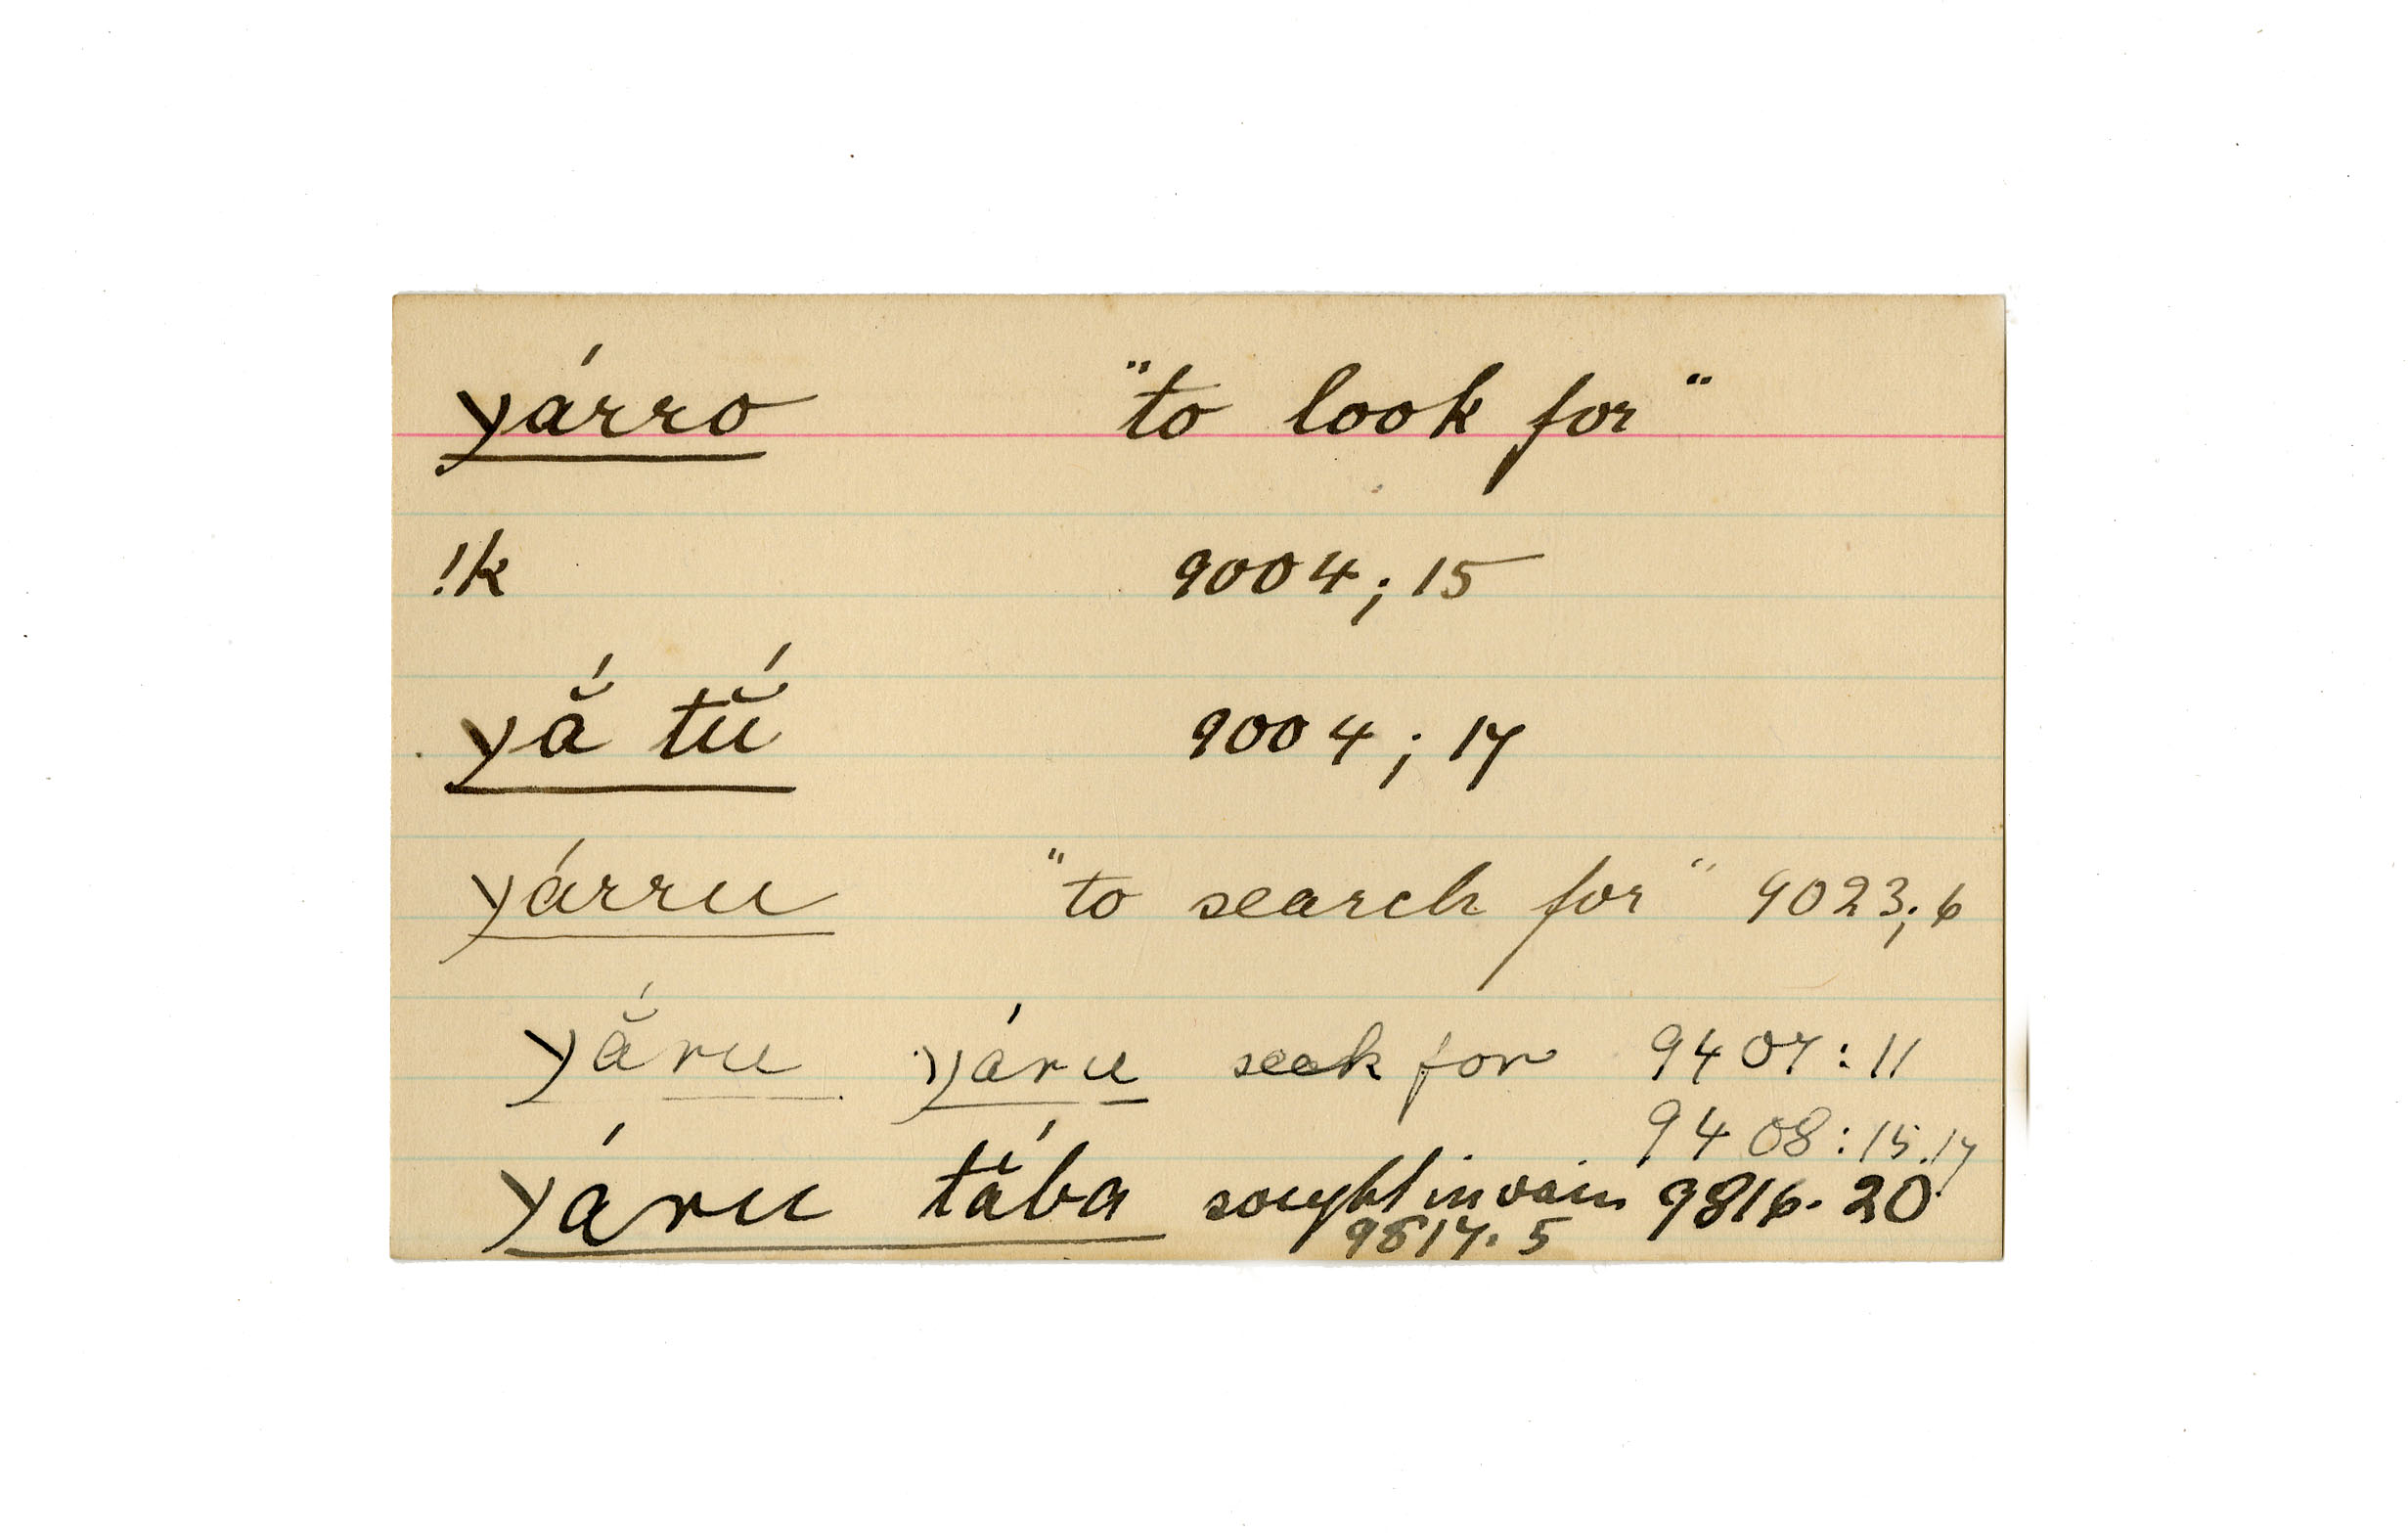 yárro "to look for"
!k 9004; 15
yắ tŭ́ 9004; 17
yárru "to search for" 9023; 6
yắru yáru seek for 9407:11
9408:15.17
yáru tắba sought in vain 9816.20
9817.5